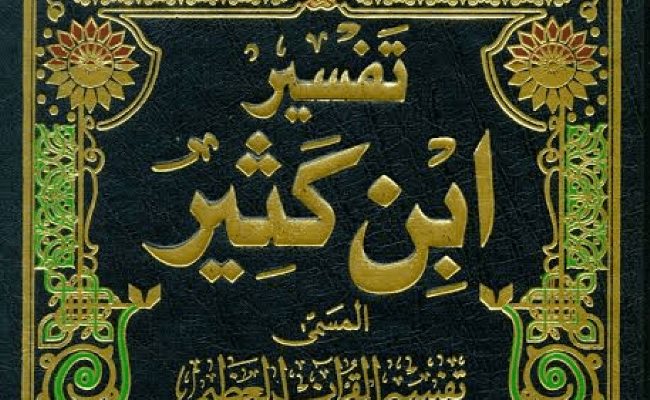 تَفْسِير
ابْنِ كَثِيْر
المسمى
تفسير القرآن العظيم